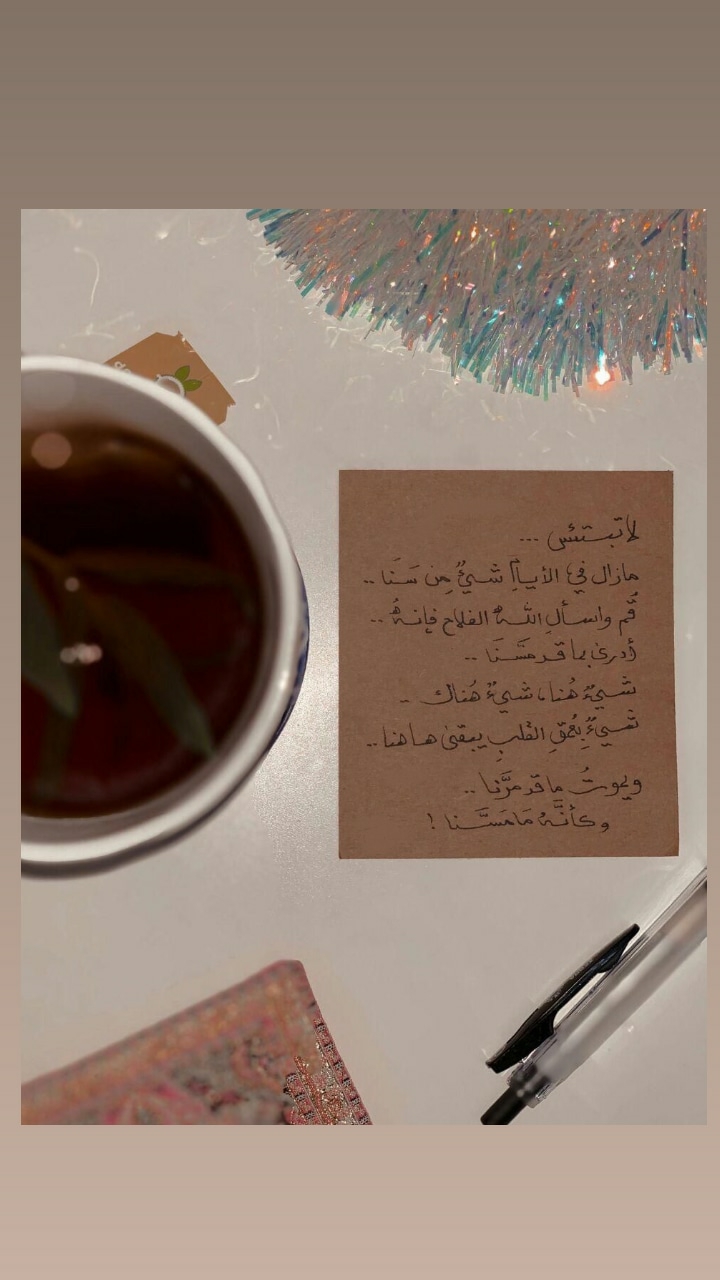 لا تبتئس ...
مازال في الأيام شيءٌ مِن سَنَا ..
قُم واسألِ اللهَ الفلاح فإنهُ ..
أدرى بما قد مسَّنَا ..
شيءٌ هُنا، شيءٌ هُناك ..
شيءٌ بِعُمقِ القلبِ يبقى هاهنا ..
ويموتُ ما قد مرَّنا ..
وكأنَّهُ مَا مَسَّنا !